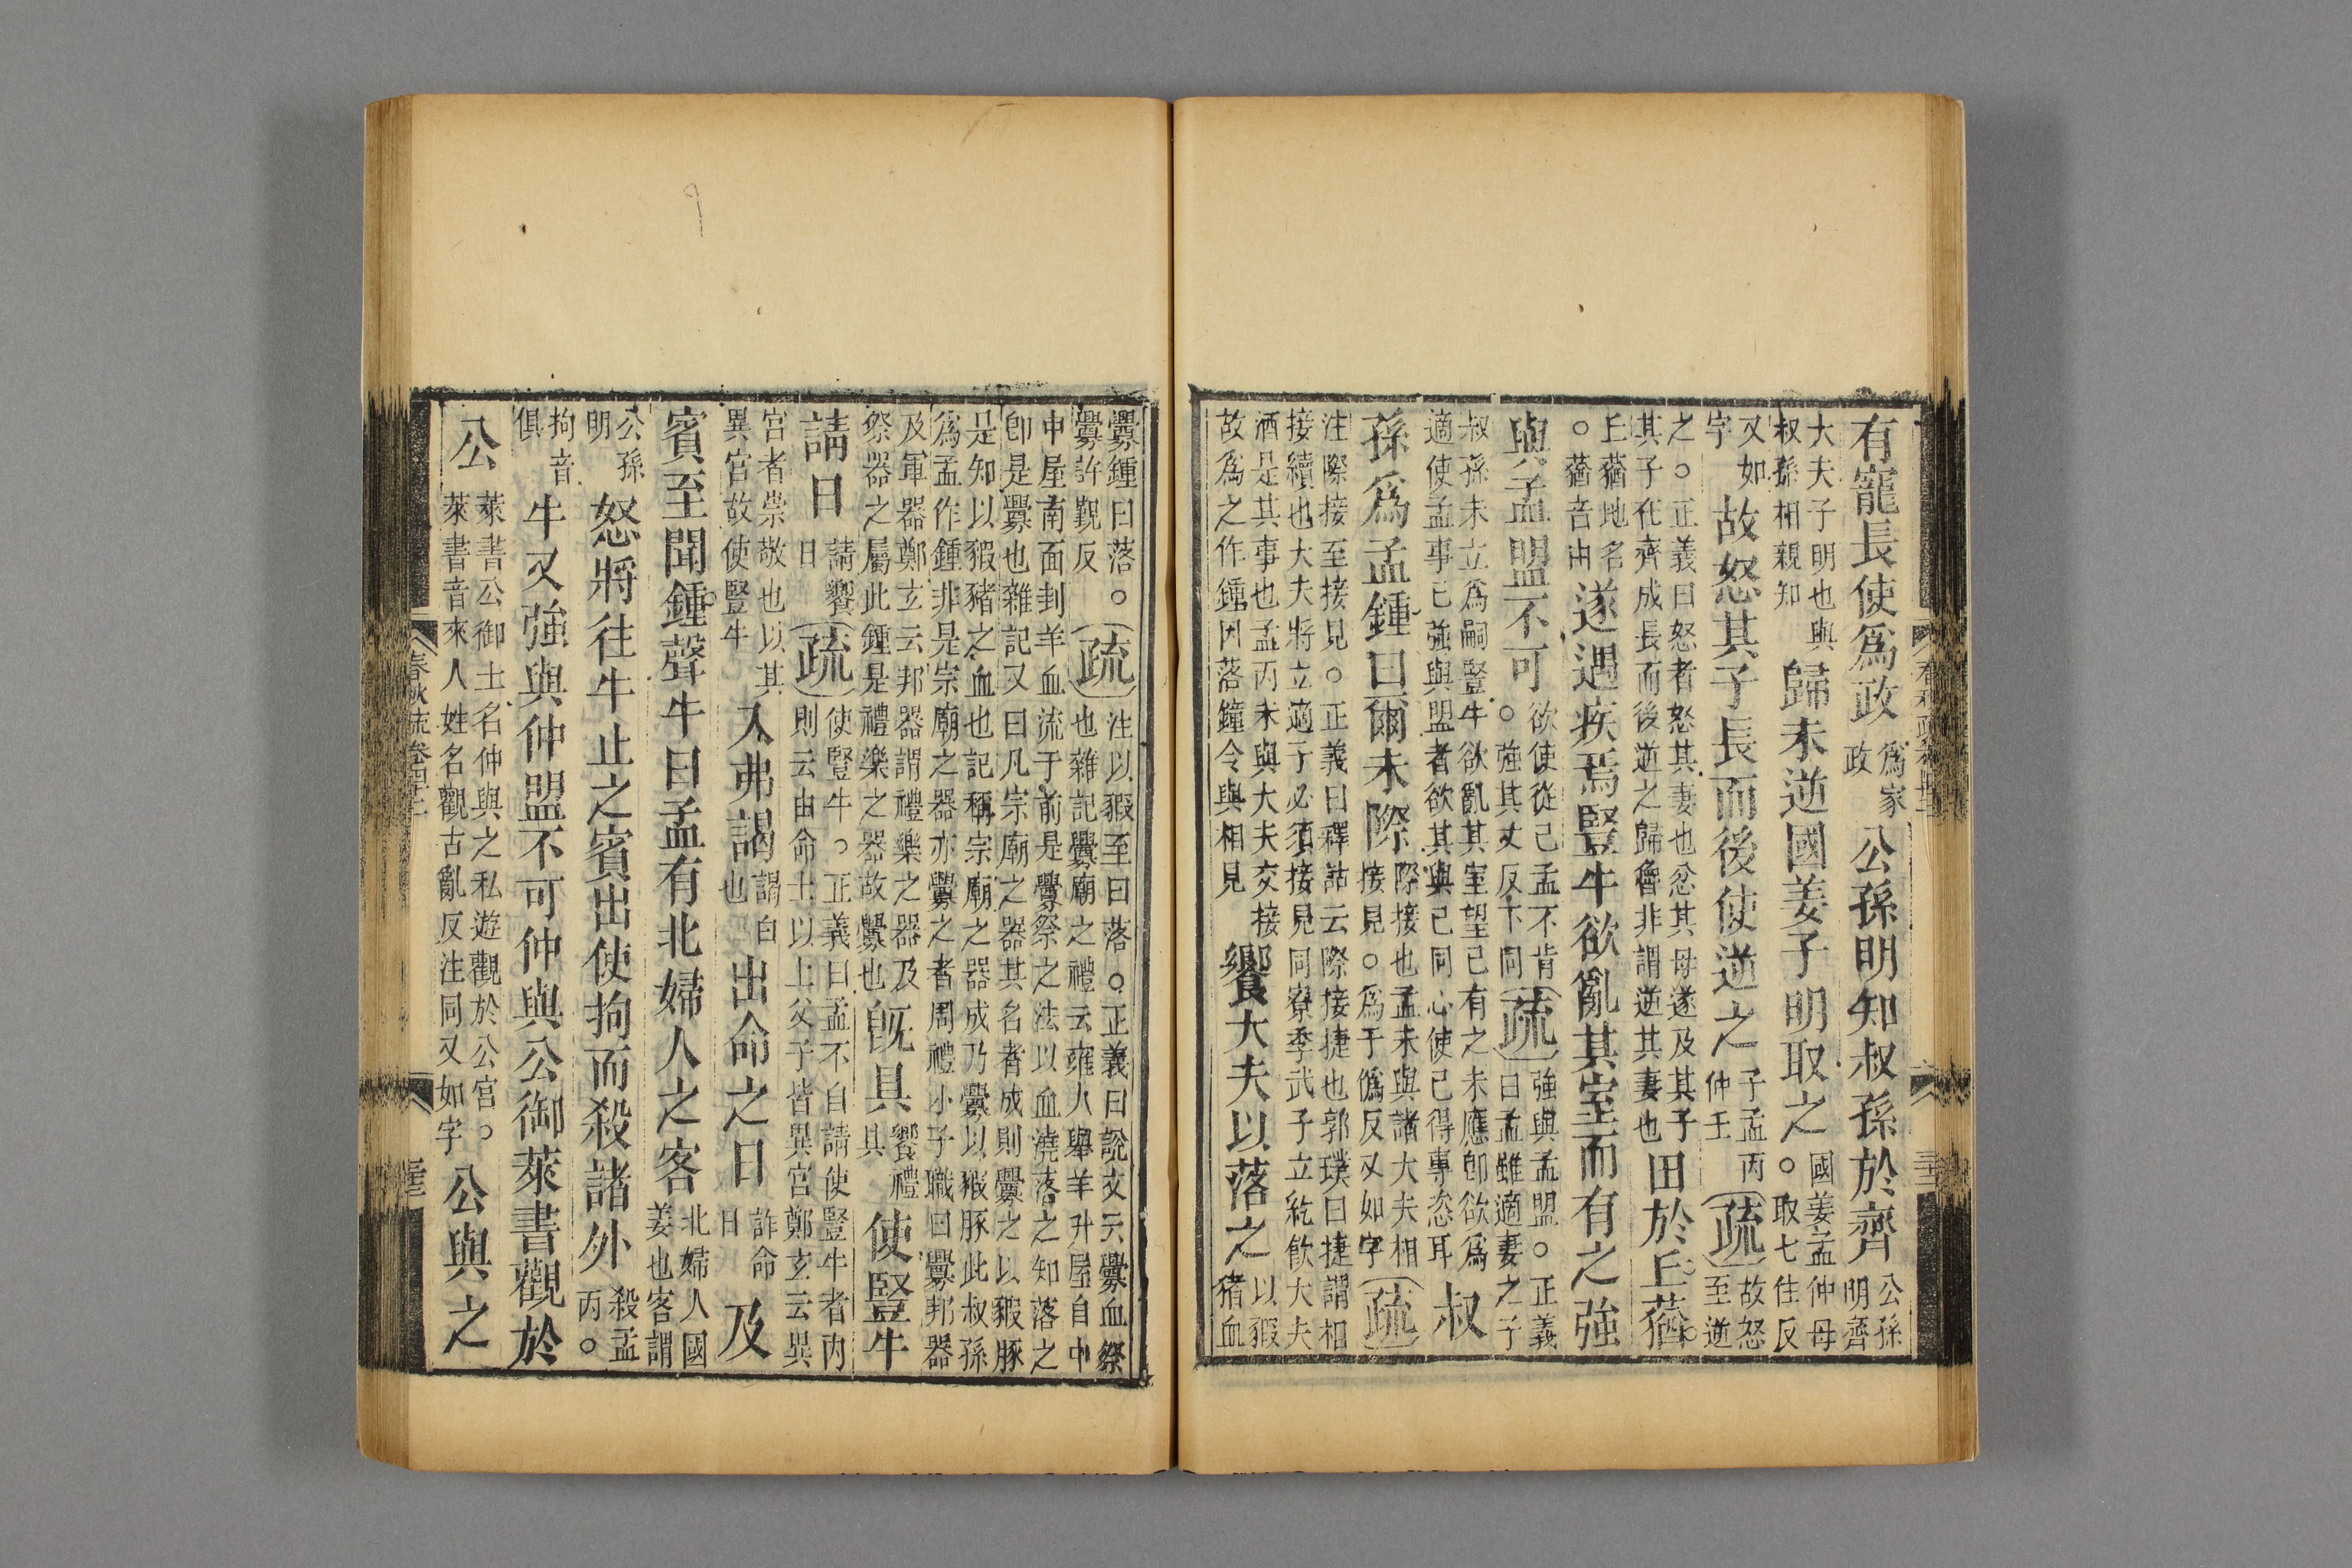 有寵長使爲政爲家政公孫明知叔孫於齊公孫明齊
大夫子明也與叔孫相親知歸未逆國姜子明取之國姜孟仲母。取七住反
又如字故怒其子長而後使逆之子孟丙仲壬疏故怒至逆
之。正義曰怒者怒其妻也忿其母遂及其子其子在齊成長而後逆之歸魯非謂逆其妻也田於丘蕕
丘蕕地名。蕕音由遂遇疾焉豎牛欲亂其室而有之強
與孟盟不可欲使從己孟不肯。強其丈反下同疏強與孟盟。正義曰孟雖適妻之子
叔孫未立爲嗣豎牛欲亂其室望己有之未應卽欲爲適使孟事已強與盟者欲其與己同心使已得專恣耳叔
孫爲孟鍾曰爾未際際接也孟未與諸大夫相接見。爲于僞反又如字疏
注際接至接見。正義曰釋詁云際接捷也郭璞曰捷謂相接續也大夫將立適子必須接見同寮季武子立紇飮大夫
酒是其事也孟丙未與大夫交接故爲之作鍾因落鐘令與相見饗大夫以落之以豭猪血
釁鍾曰落。釁許觀反疏注以豭至曰落。正義曰說文云釁血祭也雜記釁廟之禮云雍人舉羊升屋自中
中屋南面刲羊血流于前是釁祭之法以血澆落之知落之卽是釁也雜記又曰凡宗廟之器其名者成則釁之以豭豚
是知以豭豬之血也記稱宗廟之器成乃釁以豭豚此叔孫爲孟作鍾非是宗廟之器亦釁之者周禮小子職曰釁邦器
及軍器鄭玄云邦器謂禮樂之器及祭器之屬此鍾是禮樂之器故釁也旣具饗禮具使豎牛
請日請饗日疏使豎牛。正義曰孟不自請使豎牛者內則云由命士以上父子皆異宮鄭玄云異
宮者崇敬也以其異宮故使豎牛入弗謁謁白也出命之日詐命日及
賓至聞鍾聲牛曰孟有北婦人之客北婦人國姜也客謂
公孫明怒將往牛止之賓出使拘而殺諸外殺孟丙。
拘音俱牛又強與仲盟不可仲與公御萊書觀於
公萊書公御士名仲與之私遊觀於公宮。萊書音來人姓名觀古亂反注同又如字公與之